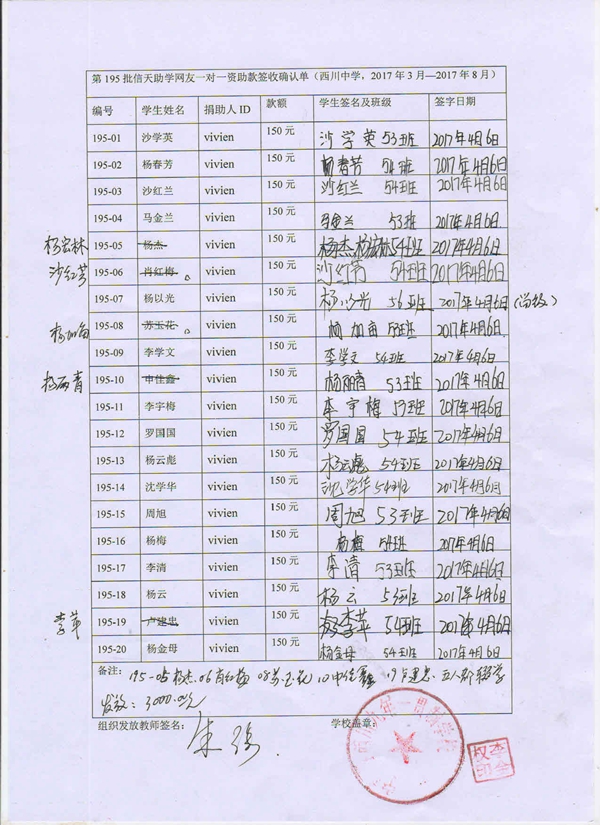 第195批信天助学网友一对一资助款签收确认单（西川中学，2017年3月—2017年8月）
编号 学生姓名 捐助人ID 款额 学生签名及班级 签字日期
195-01 沙学英 vivien 150元 沙学英 53班 2017年4月6日
195-02 杨春芳 vivien 150元 杨春芳 54班 2017年4月6日
195-03 沙红兰 vivien 150元 沙红兰 54班 2017年4月6日
195-04 马金兰 vivien 150元 马金兰 53班 2017年4月6日
杨宏林 195-05 杨杰 vivien 150元 杨杰 杨宏林 54班 2017年4月6日
沙红芳 195-06 肖红梅 vivien 150元 沙红芳 54班 2017年4月6日
195-07 杨以光 vivien 150元 杨以光 56班 2017年4月6日
195-08 苏玉花 vivien 150元 杨加 53班 2017年4月6日
195-09 李学文 vivien 150元 李学文 54班 2017年4月6日
杨丽青 195-10 申佳鑫 vivien 150元 杨丽青 53班 2017年4月6日
195-11 李宇梅 vivien 150元 李宇梅 53班 2017年4月6日
195-12 罗国国 vivien 150元 罗国国 54班 2017年4月6日
195-13 杨云彪 vivien 150元 杨云彪 54班 2017年4月6日
195-14 沈学华 vivien 150元 沈学华 54班 2017年4月6日
195-15 周旭 vivien 150元 周旭 53班 2017年4月6日
195-16 杨梅 vivien 150元 杨梅 54班 2017年4月6日
195-17 李清 vivien 150元 李清 53班 2017年4月6日
195-18 杨云 vivien 150元 杨云 54班 2017年4月6日
李苹 195-19 卢建忠 vivien 150元 李苹 54班 2017年4月6日
195-20 杨金母 vivien 150元 杨金母 54班 2017年4月6日
备注： 195-05杨杰.06肖红梅 08苏玉花 10申佳鑫 19卢建忠.五人都辍学
发放：3000.00元
组织发放教师签名： 学校盖章：
李全
权印